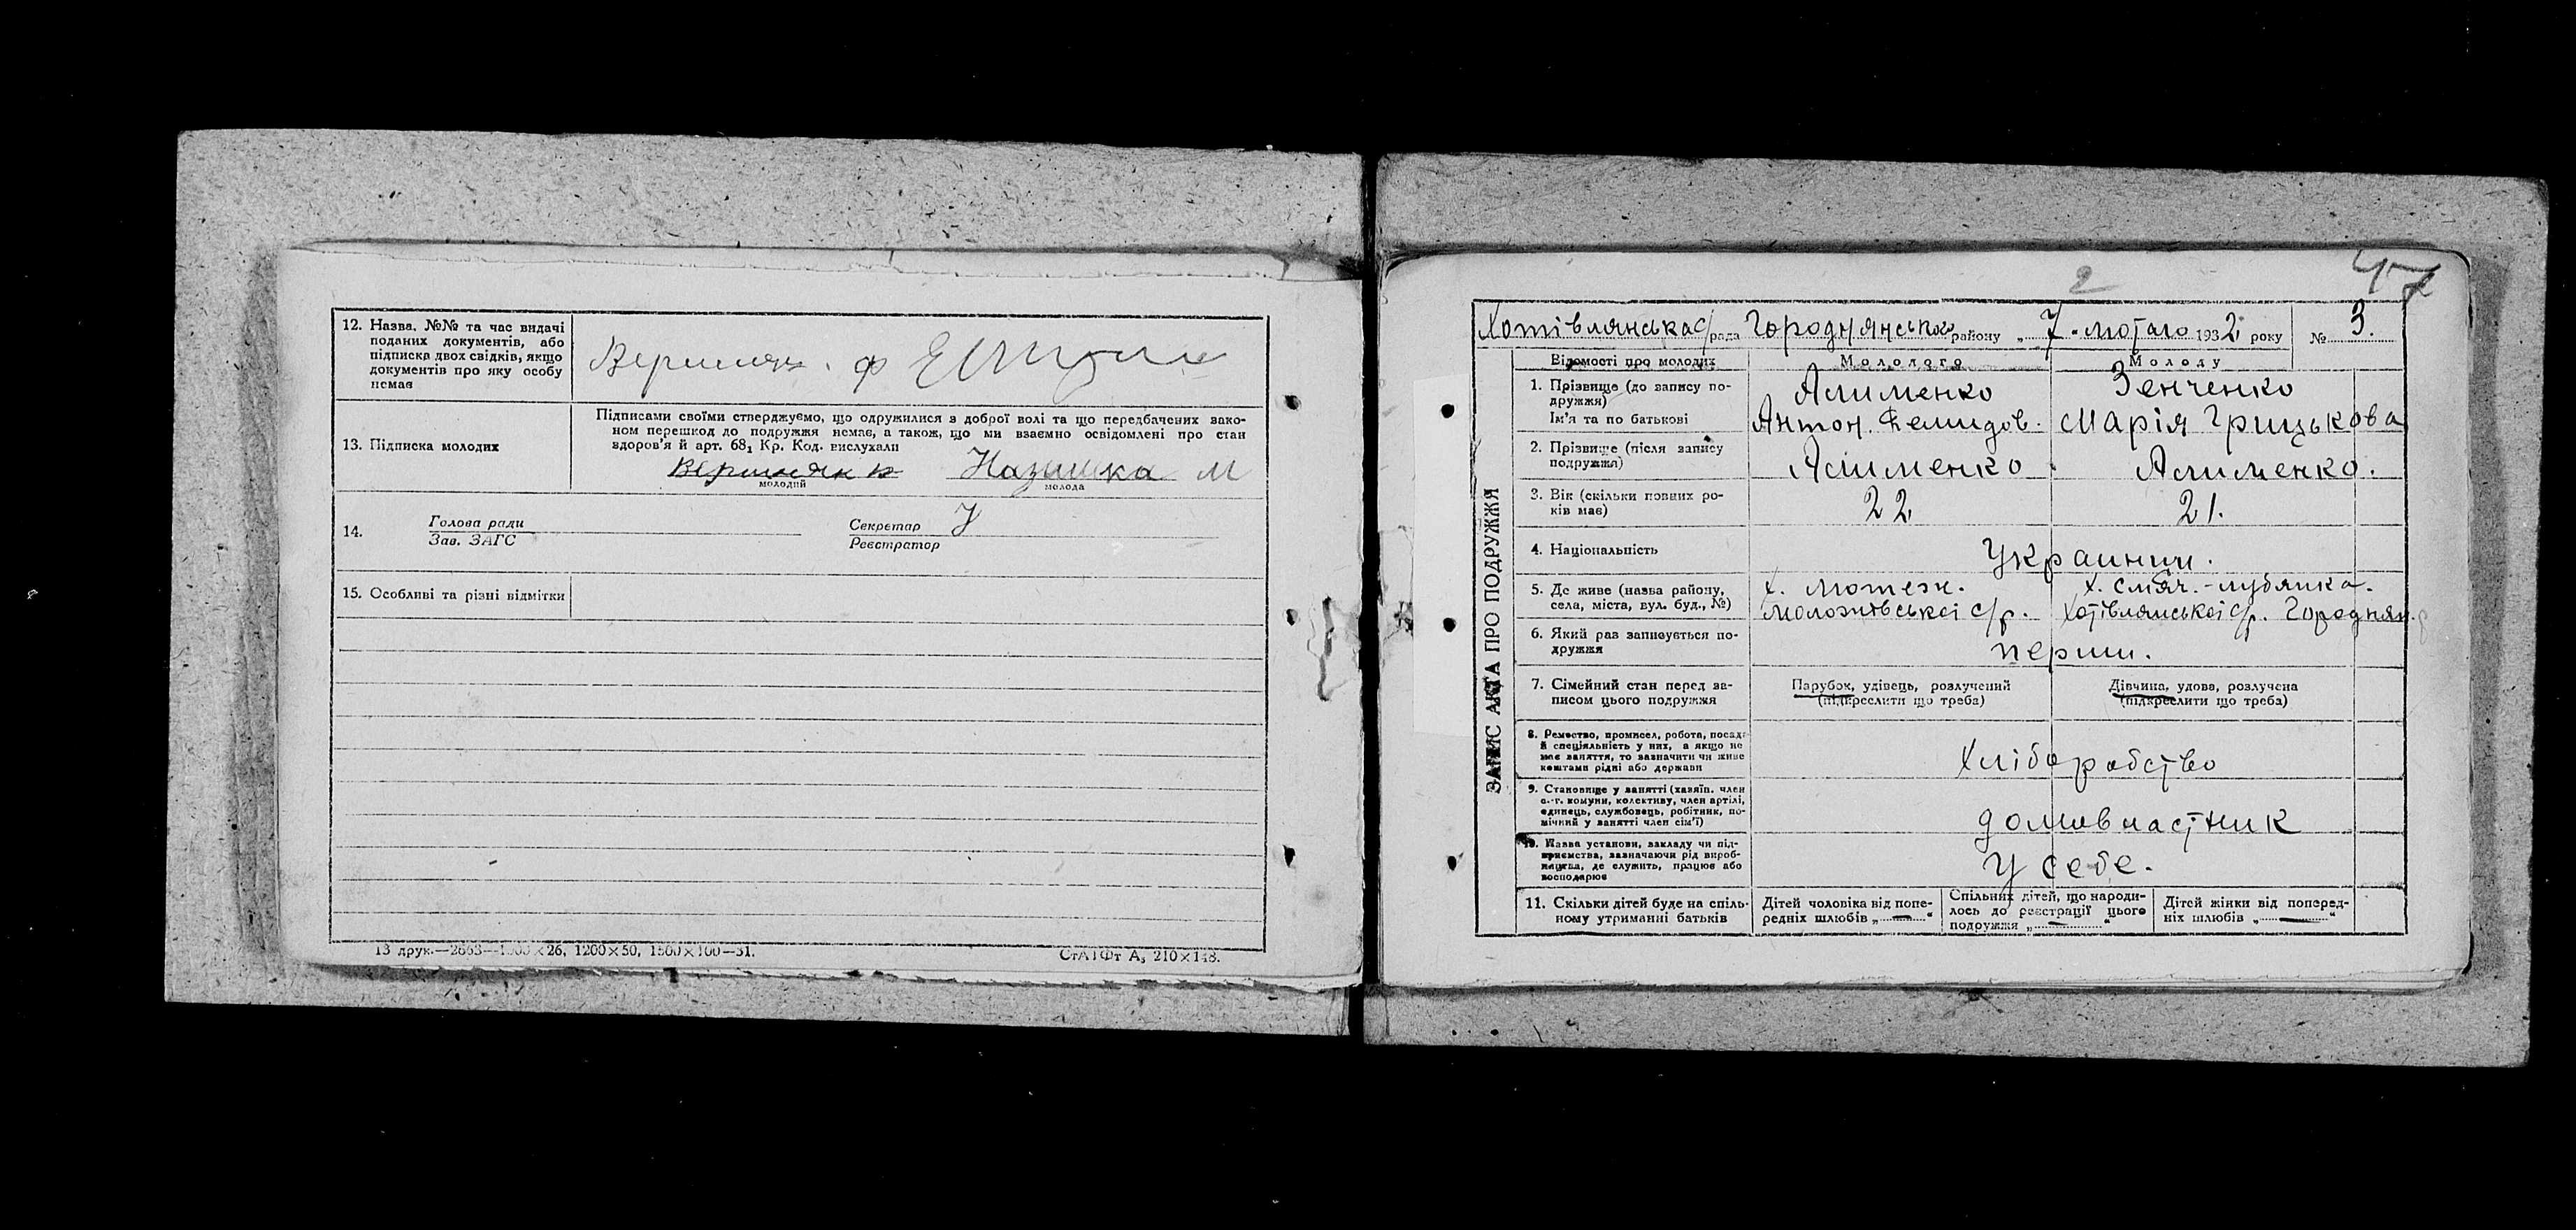 12. Назва, №№ та час видачі
поданих документів, або
підписка двох свідків, якщо
документів про яку особу
немає
13. Підписка молодих
Підписами своїми стверджуємо, що одружилися з доброї волі та що передбачених зако-
ном перешкод до подружжя немає, а також, що ми взаємно освідомлені про стан
здоров'я й арт. 68₁ Кр. Код. вислухали
молодий
молода
14. Голова ради
Зав. ЗАГС
Секретар
Реєстратор
15. Особливі та різні відмітки
13 друк.—2663—1500×26, 1200×50, 1500×100—31.
СтАТФт А₅ 210×148.
2
47
Хотівлянська с/рада Городнянсько району „7" лютаго 1932 року № 3.
ЗАПИС АКТА ПРО ПОДРУЖЖЯ
Відомості про молодих
Молодого
Молоду
1. Прізвище (до запису по-
дружжя)
Ім'я та по батькові
Зенченко
Антон. Марія Грицькова
2. Прізвище (після запису
подружжя)
3. Вік (скільки повних ро-
ків має)
22 21.
4. Національність
Украинци.
5. Де живе (назва району,
села, міста, вул. буд., №)
х. х. Смяч.-лубянка.
с/р. Хотівлянської с/р. Городнян. р
6. Який раз записується по-
дружжя
перши.
7. Сімейний стан перед за-
писом цього подружжя
Парубок, удівець, розлучений
(підкреслити що треба)
Дівчина, удова, розлучена
(підкреслити що треба)
8. Ремество, промисел, робота, посада
й спеціяльність у них, а якщо не
має заняття, то зазначити чи живе
коштами рідні або держави
Хліборобство
9. Становище у занятті (хазяїн, член
с.-г. комуни, колективу, член артілі,
одинець, службовець, робітник, по-
мічний у занятті член сім'ї)
домовластник
10. Назва установи, закладу чи під-
приємства, зазначаючи рід вироб-
ництва, де служить, працює або
господарює
у себе.
11. Скільки дітей буде на спіль-
ному утриманні батьків
Дітей чоловіка від попе-
редніх шлюбів „—"
Спільних дітей, що народи-
лось до реєстрації цього
подружжя „—"
Дітей жінки від поперед-
ніх шлюбів „—"